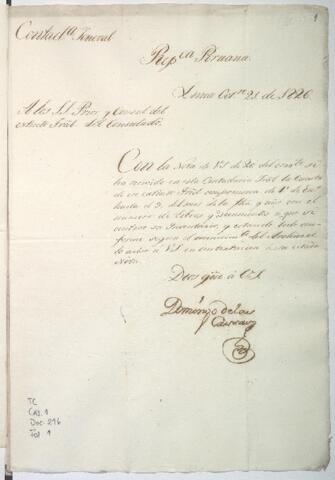 1
Contad.ª General
Rep.ca Peruana
Lima Oct.re 21 de 1826
A los S.S. Prior y Consul del
extinto Tral. del Consulado.
Con la Nota de VS de 20 del corr.te se
ha recivido en esta Contaduria Gral. la Cuenta
de ese extinto Tral comprensiva de 1º de En.º
hasta el 9 del mes de la fha y año con el
numero de Libros y documentos a que se
contrae su Inventario, y estando todo con-
forme segun el
VS en contextacion a su citada
Nota.
Dios gũe à VS.
Domingo de las
Casas
TC
CAJ. 1
Doc. 296
Fol 1